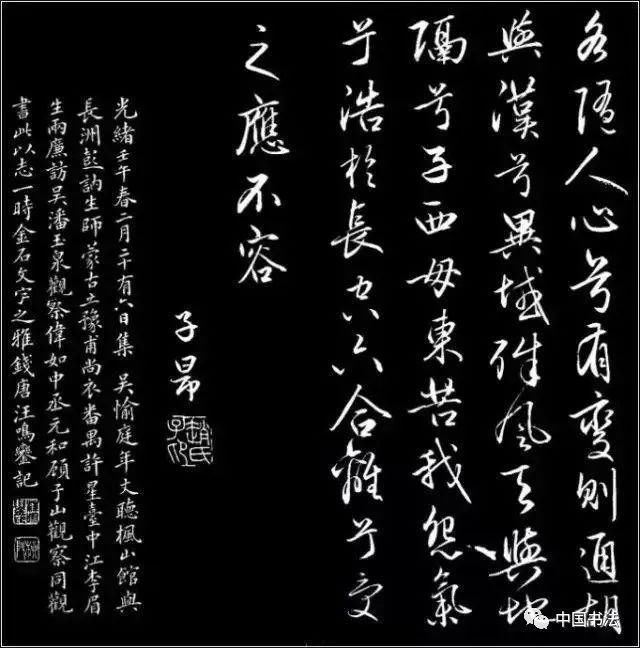 各隨人心兮有變則通胡
與漢兮異域殊風天與地
隔兮子西母東苦我怨氣
兮浩於長空六合雖兮受
之應不容
子昂
趙氏子昂
光緒壬午春二月二十有六日集 吳愉庭年丈聽楓山館與
長洲彭訥生師蒙古立豫甫尚衣番禺許星臺中江李眉
生兩廉訪吳潘玉泉觀察偉如中丞元和顧子山觀察同觀
書此以志一時金石文字之雅錢唐汪鳴鑾記
中国书法